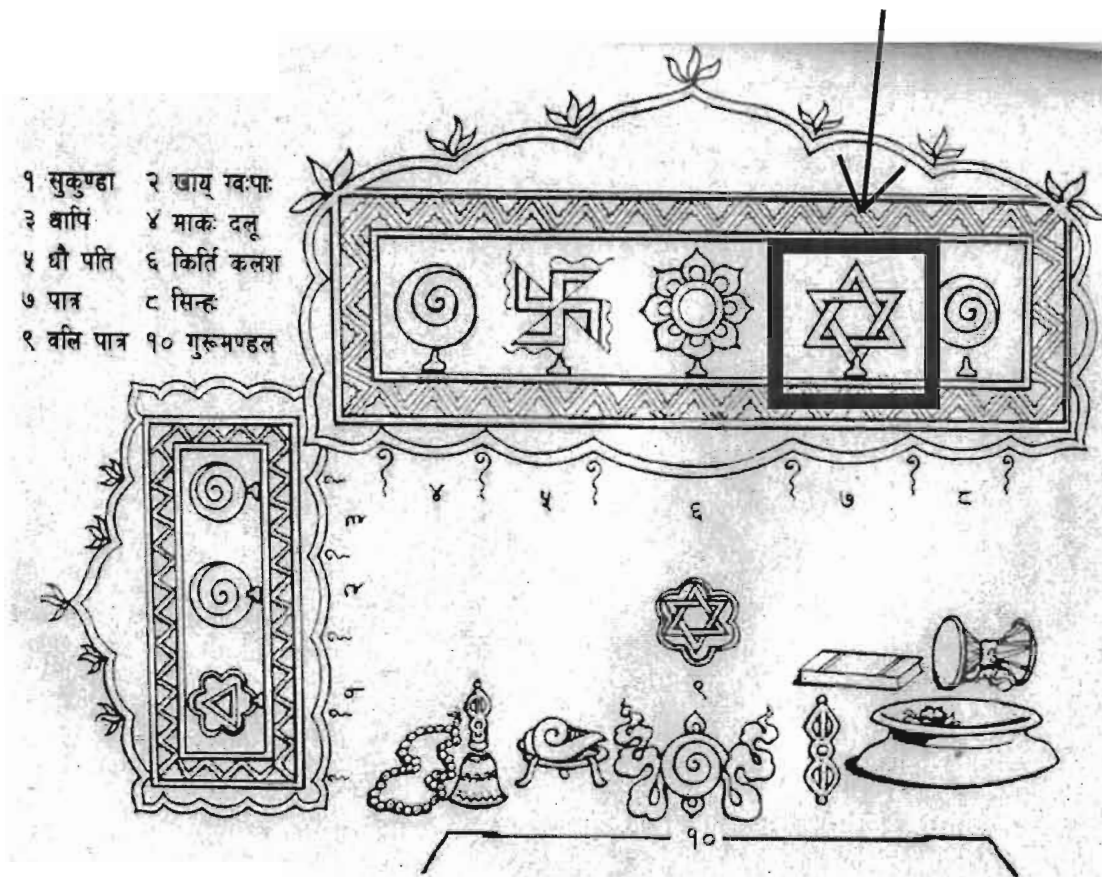 १ सुकुण्डा २ खाय् ग्वःपाः
३ थापिं ४ माकः दलू
५ धौ पति ६ किर्ति कलश
७ पात्र ८ सिन्हः
९ वलि पात्र १० गुरूमण्डल
४ ५ ६ ७ ८
३
२
१
९
१०